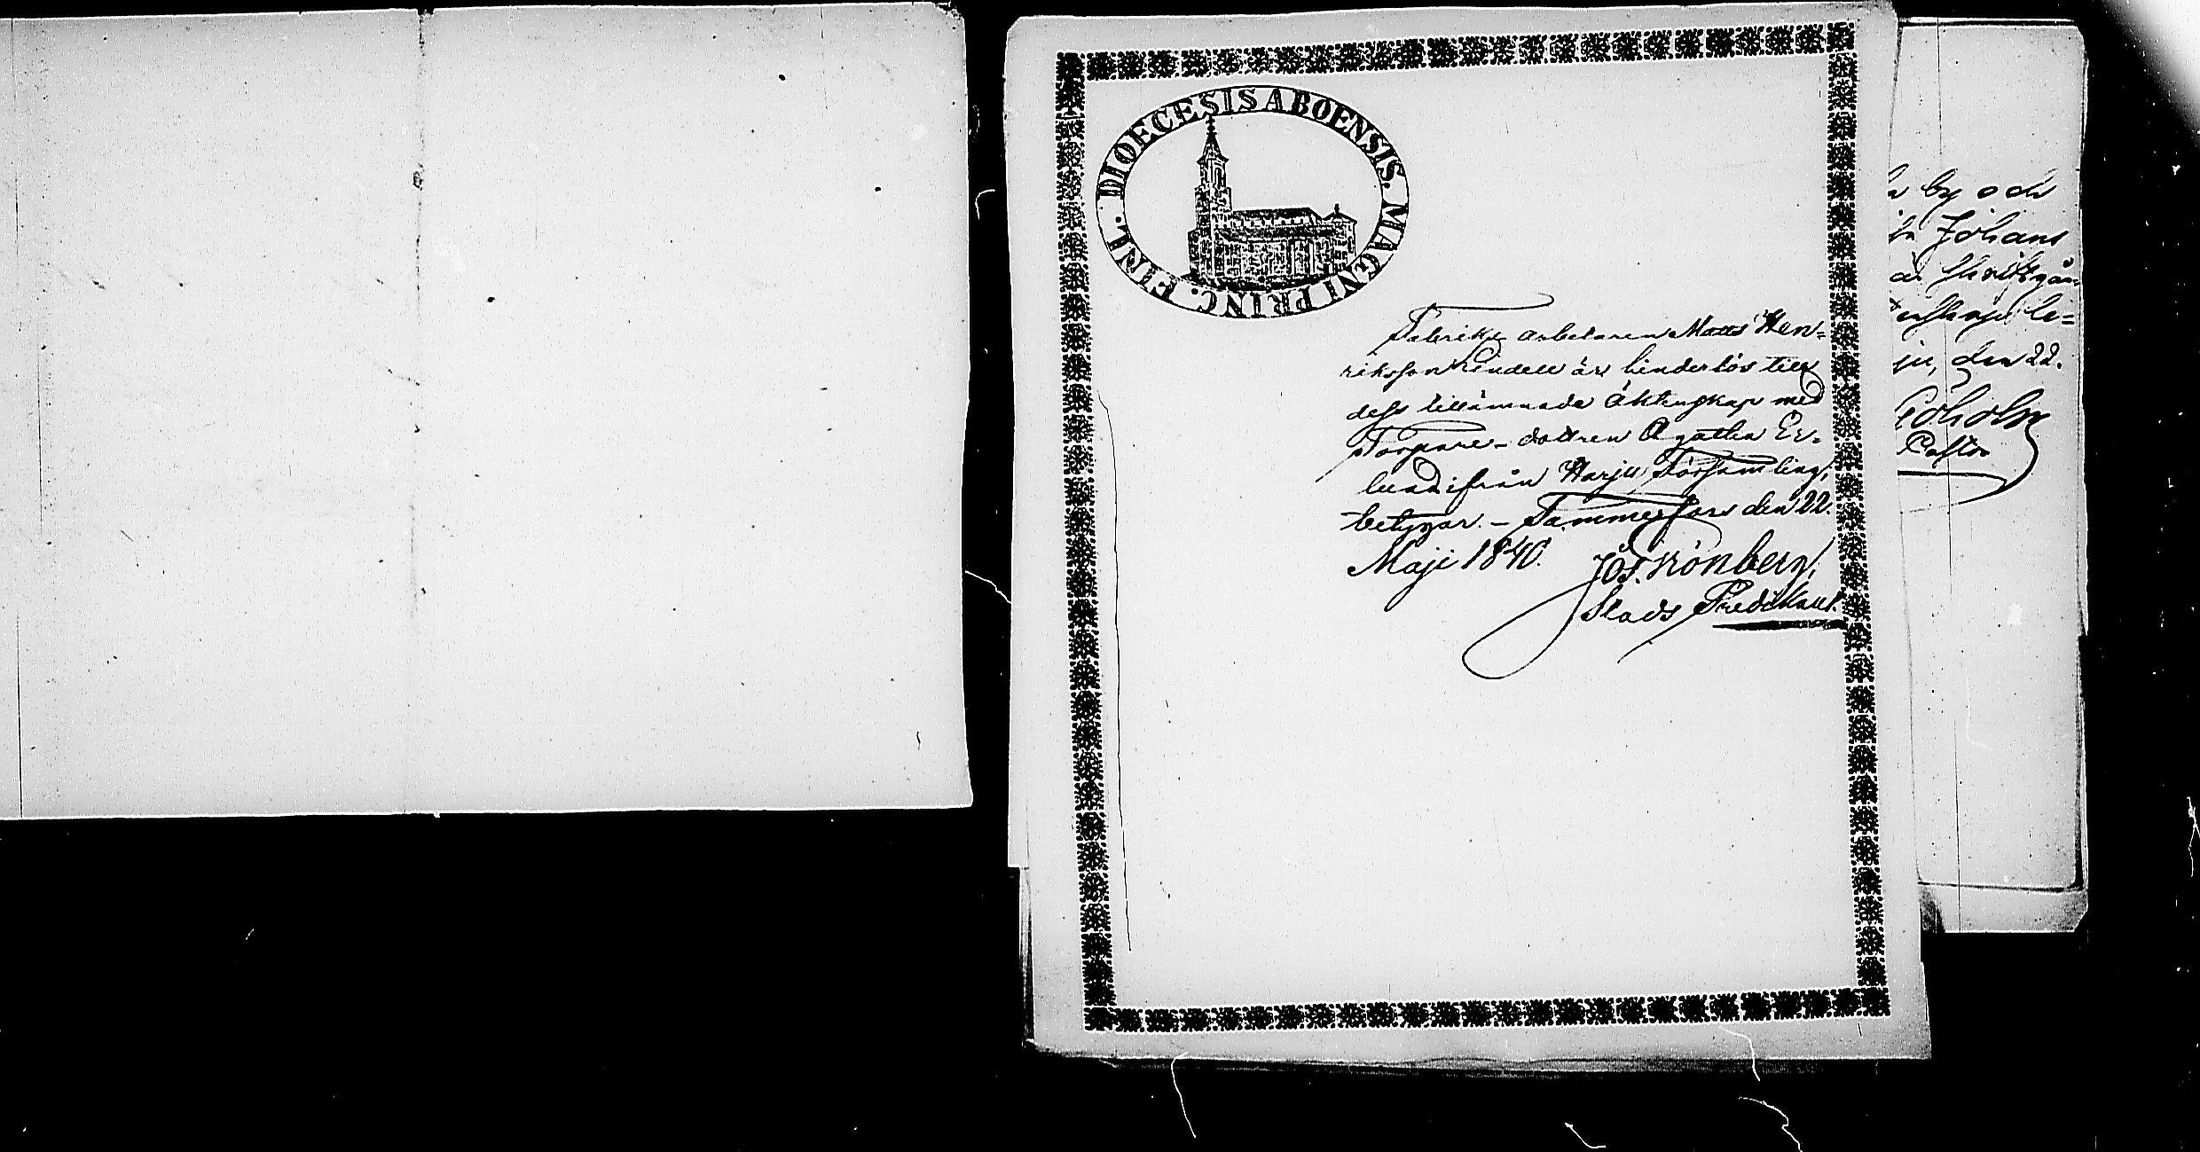 DIOECESIS ABOENSIS. MAGNI PRINC. FINL.
Fabriks arbetaren Matts Hen=
riksson Lindell är hinderlös till
dess tillämnade Äktenskap med
Torpare-dottren Agatha Er-
lund ifrån Harju Församling,
betygar. – Tammerfors den 22.
Maji 1840.
Jos. Grönberg,
Stads Predikant.
by och
Johans
skriftgån-
den 22.
Pastor